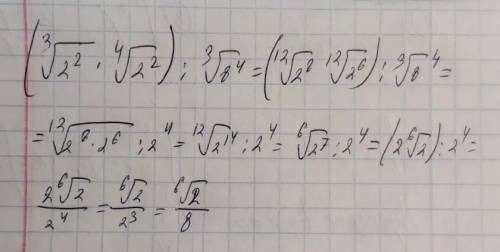 (∛2² · ∜2²) : ∛8⁴ = (¹²√2⁸ ¹²√2⁶) : ∛8⁴ =
= ¹²√2⁸·2⁶ : 2⁴ = ¹²√2¹⁴ : 2⁴ = ⁶√2⁷ : 2⁴ = (2⁶√2) : 2⁴ =
2⁶√2/2⁴ = ⁶√2/2³ = ⁶√2/8